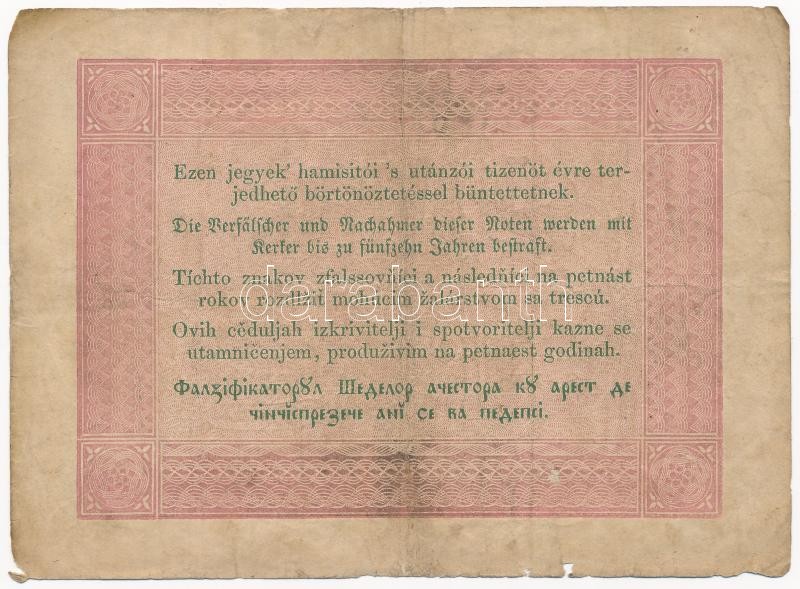 Ezen jegyek' hamisitói 's utánzói tizenöt évre ter-
jedhető börtönöztetéssel büntettetnek.
Die Verfälscher und Nachahmer dieser Noten werden mit
Kerker bis zu fünfzehn Jahren bestraft.
Tíchto znakov zfalssovňíci a následňíci na petnást
rokov rozdlžit mohúcim žalárstvom sa trescú.
darabanth
Ovih cěduljah izkrivitelji i spotvoritelji kazne se
utamničenjem, produživim na petnaest godinah.
Фалꙁіфікаторꙋл Шеделор ачестора кꙋ арест де
чінчіспреꙁече анї се ва педепсі.